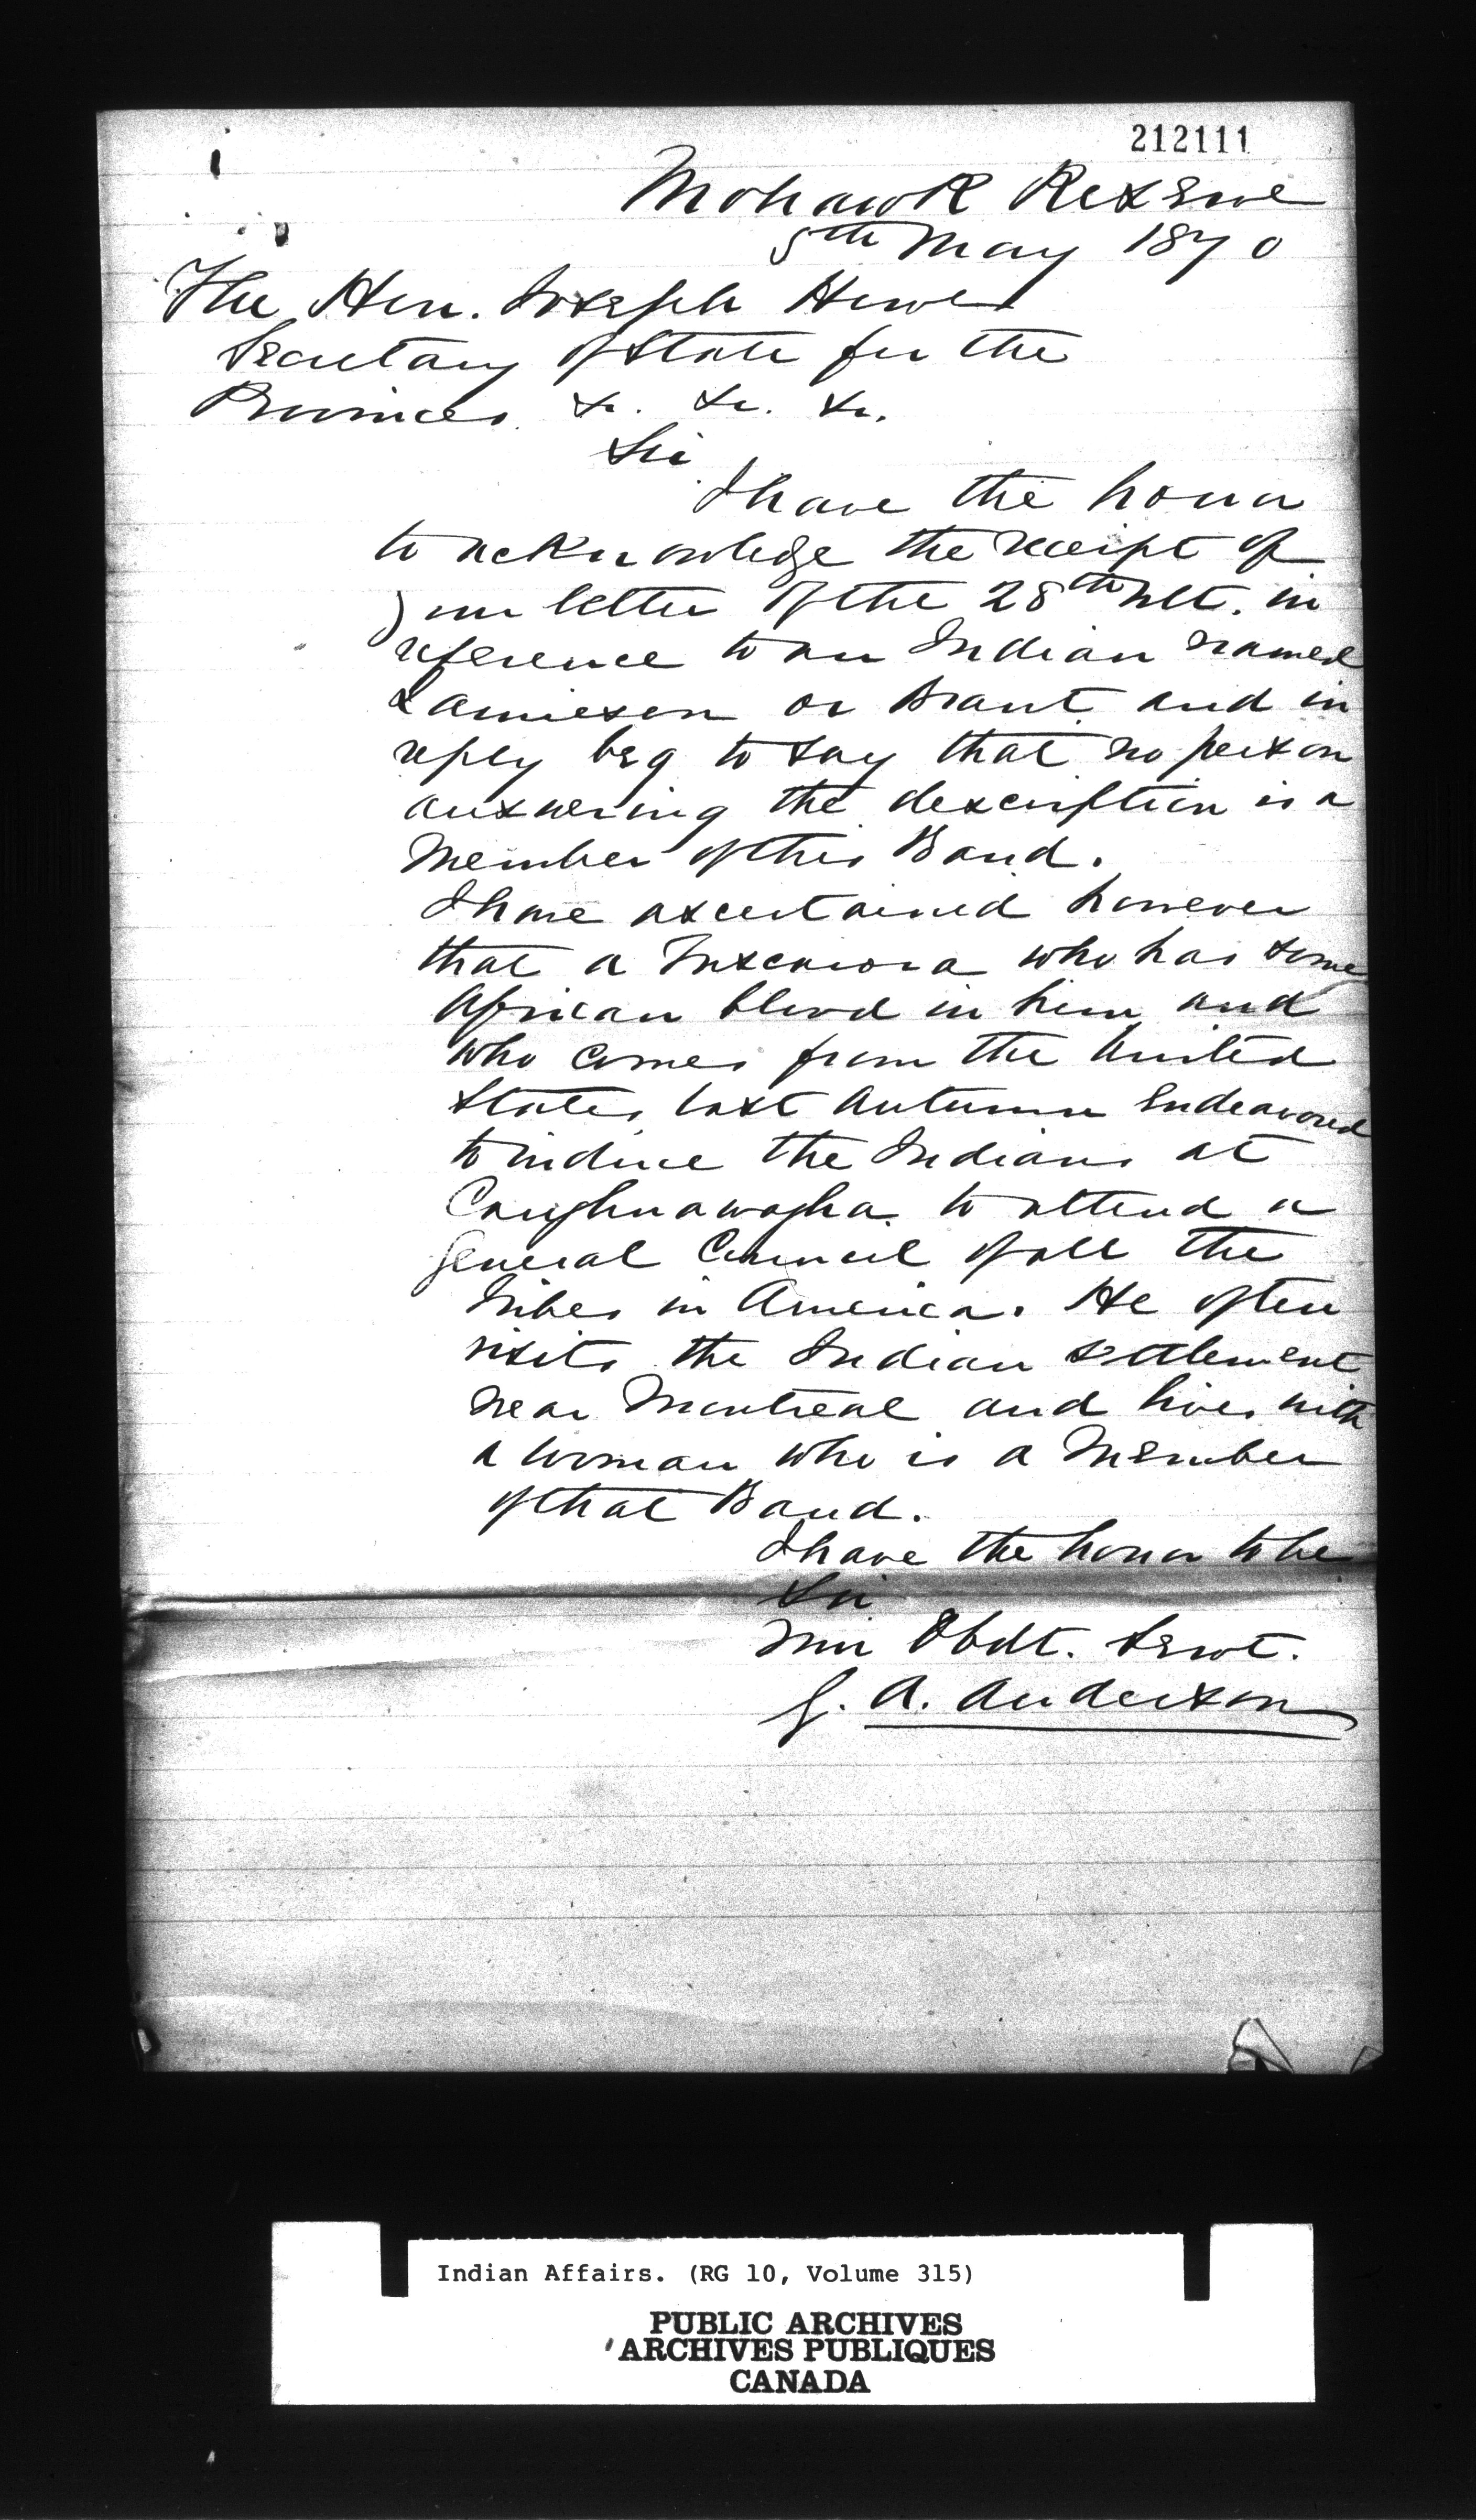 212111
Mohawk Reserve
5th May 1870
The Hon. Joseph Howe
Secretary of State for the
Provinces &c. &c. &c.
Sir
I have the honor
to acknowledge the receipt of
your letter of the 28th ult. in
reference to an Indian named
Lamieson or Brant and in
reply beg to say that no person
answering the description is a
Member of this Band.
I have ascertained however
that a Tuscarora who has some
African blood in him and
who comes from the United
States, last Autumn Endeavored
to induce the Indians at
Caughnawagha to attend a
General Council of all the
Tribes in America. He often
visits the Indian settlement
near Montreal and lives with
a woman who is a Member
of that Band.
I have the honor to be
Sir
Your Obdt. Servt.
G. A. Anderson
Indian Affairs. (RG 10, Volume 315)
PUBLIC ARCHIVES
ARCHIVES PUBLIQUES
CANADA